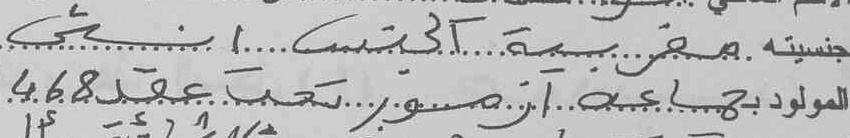 جنسيته مغربية الجنس انثى
المولود بجماعة آزمور تحت عقد 468